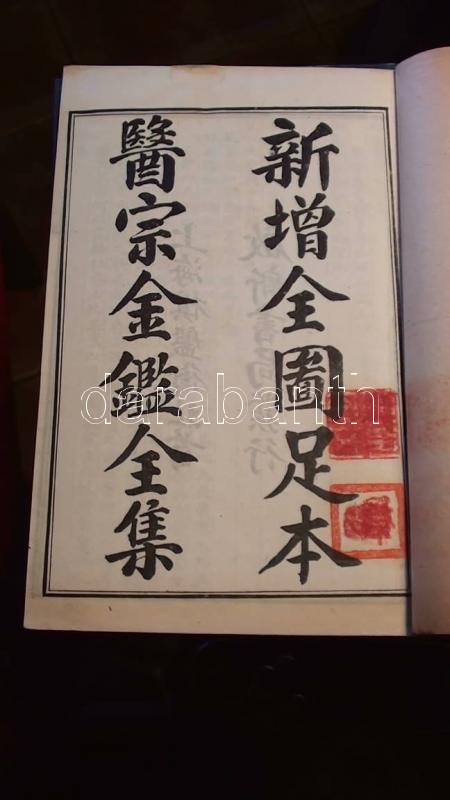 新增全圖足本
醫宗金鑑全集
darabanth